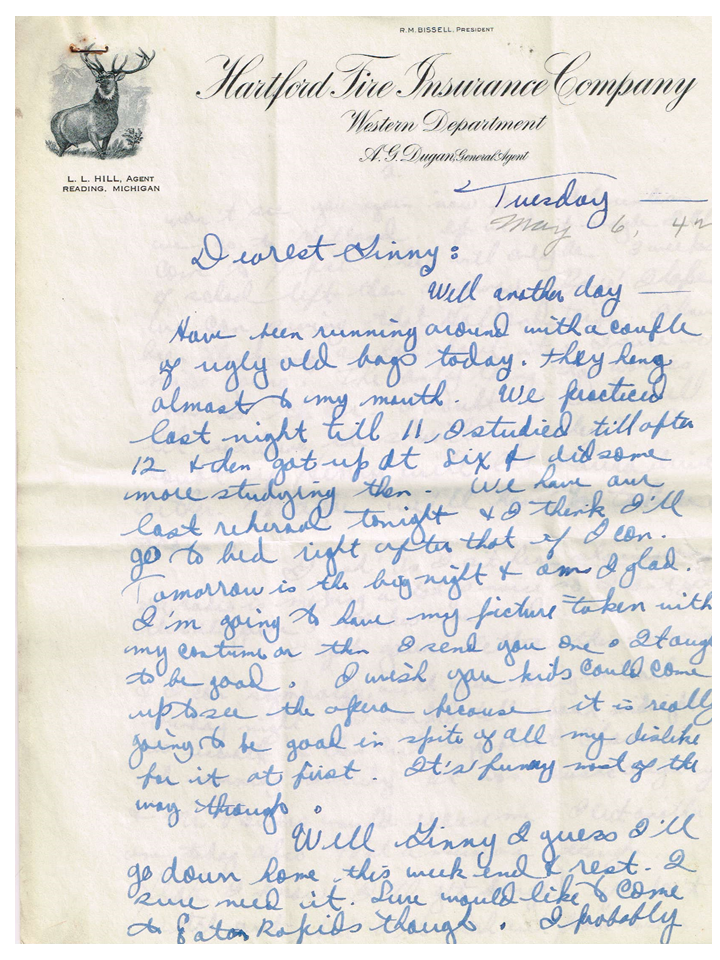 R. M. BISSELL, PRESIDENT
Hartford Fire Insurance Company
Western Department
A. G. Dugan, General Agent
L. L. HILL, AGENT
READING, MICHIGAN
Tuesday
May 6, 42
Dearest Ginny:
Well another day
Have been running around with a couple
of ugly old bags today. They hang
almost to my mouth. We practiced
last night till 11, I studied till after
12 & then got up at six & did some
more studying then. We have our
last rehersal tonight & I think I'll
go to bed right after that if I can.
Tomorrow is the big night & am I glad.
I'm going to have my picture taken with
my costume on then I send you one. I
to be good. I wish you kids could come
up to see the opera because it is really
going to be good in spite of all my dislike
for it at first. It's funny most of the
way through.
Well Ginny I guess I'll
go down home this week end & rest. I
sure need it. Sure would like to come
to Eaton Rapids though. I probably